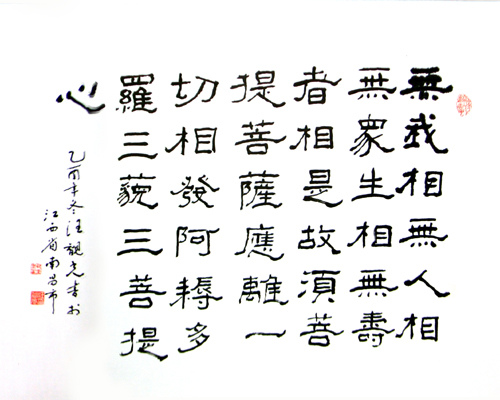 無我相無人相
無眾生相無壽
者相是故須菩
提菩薩應離一
切相發阿耨多
羅三藐三菩提
心
乙酉年冬汪書於
江西省南昌市